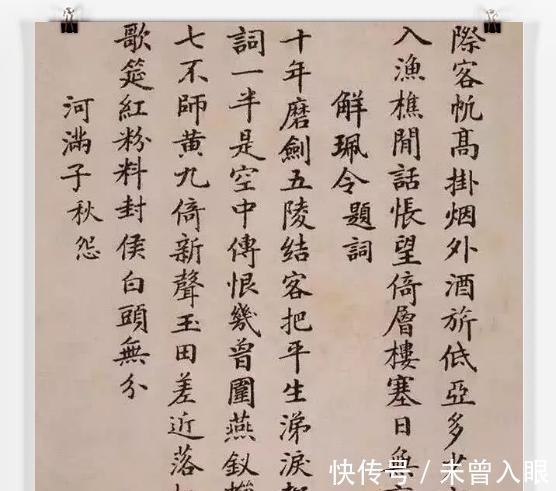 際客帆高掛烟外酒旂低亞多
入漁樵閒話悵望倚層樓塞日無
解珮令題詞
十年磨劍五陵結客把平生涕淚
詞一半是空中傳恨幾曾圍燕釵
七不師黃九倚新聲玉田差近落
歌筵紅粉料封侯白頭無分
河滿子秋怨
快传号 / 未曾入眼